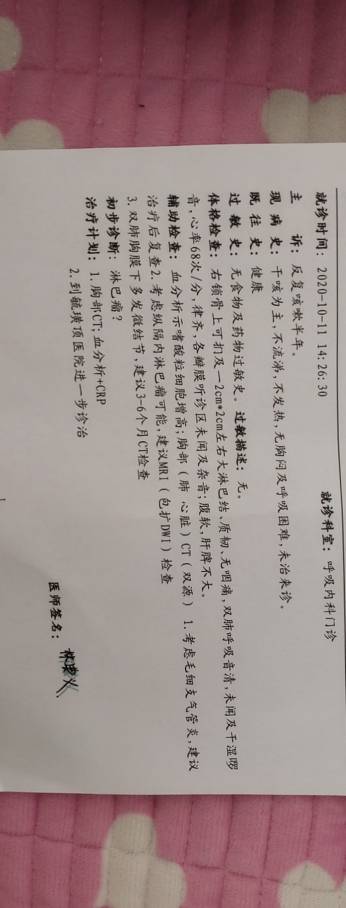 就诊时间：2020-10-11 14:26:30 就诊科室：呼吸内科门诊
主 诉：反复咳嗽半年。
现 病 史：干咳为主，不流涕，不发热，无胸闷及呼吸困难，未治来诊。
既 往 史：健康
过 敏 史：无食物及药物过敏史。过敏描述：无。
体格检查：右锁骨上可扪及一2cm*2cm左右大淋巴结，质韧、无咽痛，双肺呼吸音清，未闻及干湿啰
音，心率68次/分，律齐，各瓣膜听诊区未闻及杂音；腹软，肝脾不大。
辅助检查：血分析示嗜酸粒细胞增高；胸部（肺 心脏）CT（双源） 1.考虑毛细支气管炎，建议
治疗后复查2.考虑纵隔内淋巴瘤可能，建议MRI（包扩DWI）检查
3.双肺胸膜下多发微结节，建议3-6个月CT检查
初步诊断：淋巴瘤？
治疗计划：1.胸部CT；血分析+CRP
2.到毓璜顶医院进一步诊治
医师签名：